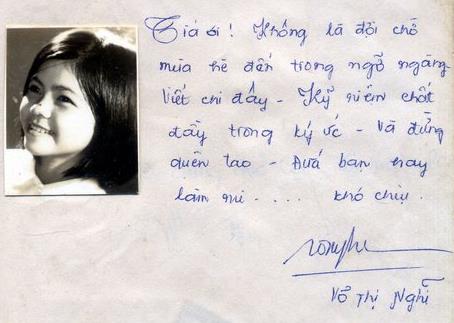 Giá ơi ! Không là đợi chờ
mùa hè đến trong ngỡ ngàng
Viết chi đấy - Kỷ niệm chất
đầy trong ký ức - Và đừng
quên tao - Đứa bạn hay
làm mi . . . . khó chịu .
Võ Thị Nghĩ